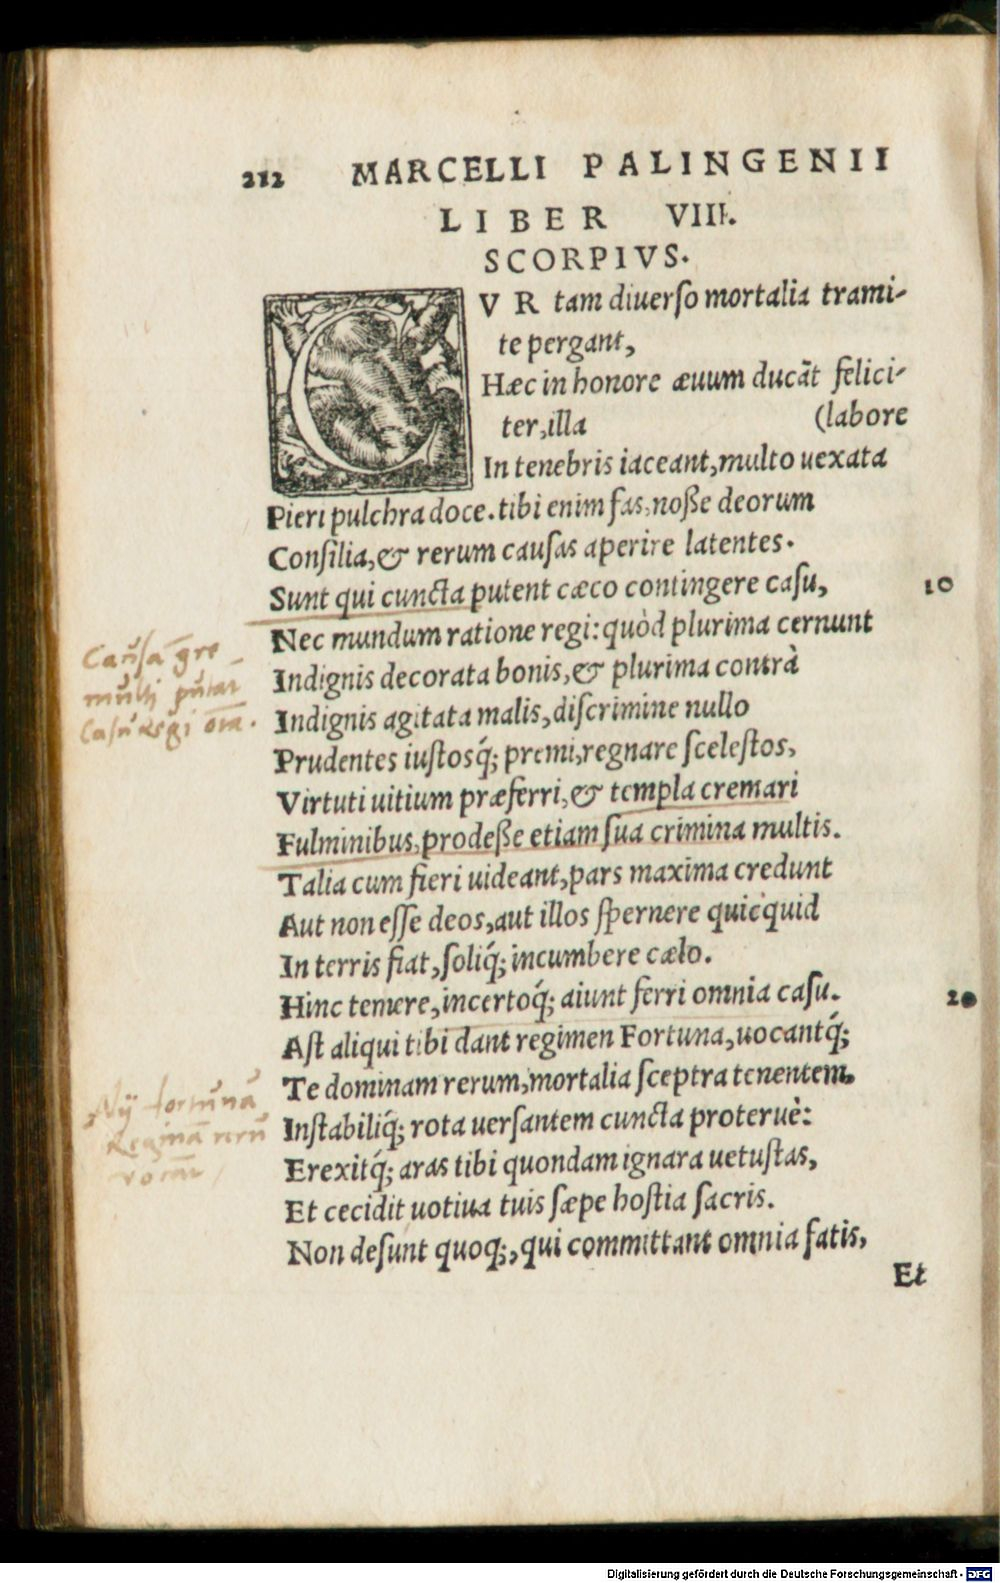 212 MARCELLI PALINGENII
LIBER VIII.
SCORPIVS.
CVR tam diuerso mortalia trami-
te pergant,
Hæc in honore æuum ducāt felici-
ter, illa (labore
In tenebris iaceant, multo uexata
Pieri pulchra doce. tibi enim fas, noße deorum
Consilia, & rerum causas aperire latentes.
Sunt qui cuncta putent cæco contingere casu, 10
Nec mundum ratione regi: quòd plurima cernunt
Indignis decorata bonis, & plurima contrà
Indignis agitata malis, discrimine nullo
Prudentes iustosq́; premi, regnare scelestos,
Virtuti uitium præferri, & templa cremari
Fulminibus, prodeße etiam sua crimina multis.
Talia cum fieri uideant, pars maxima credunt
Aut non esse deos, aut illos spernere quicquid
In terris fiat, soliq́; incumbere cælo.
Hinc temere, incertoq́; aiunt ferri omnia casu. 20
Ast aliqui tibi dant regimen Fortuna, uocantq́;
Te dominam rerum, mortalia sceptra tenentem,
Instabiliq́; rota uersantem cuncta proteruè:
Erexitq́; aras tibi quondam ignara uetustas,
Et cecidit uotiua tuis sæpe hostia sacris.
Non desunt quoq;, qui committant omnia fatis,
Et
Causā
multi putāt
Casu regi oīa.
fortunā
Reginā rerū
vocāt
Digitalisierung gefördert durch die Deutsche Forschungsgemeinschaft - DFG